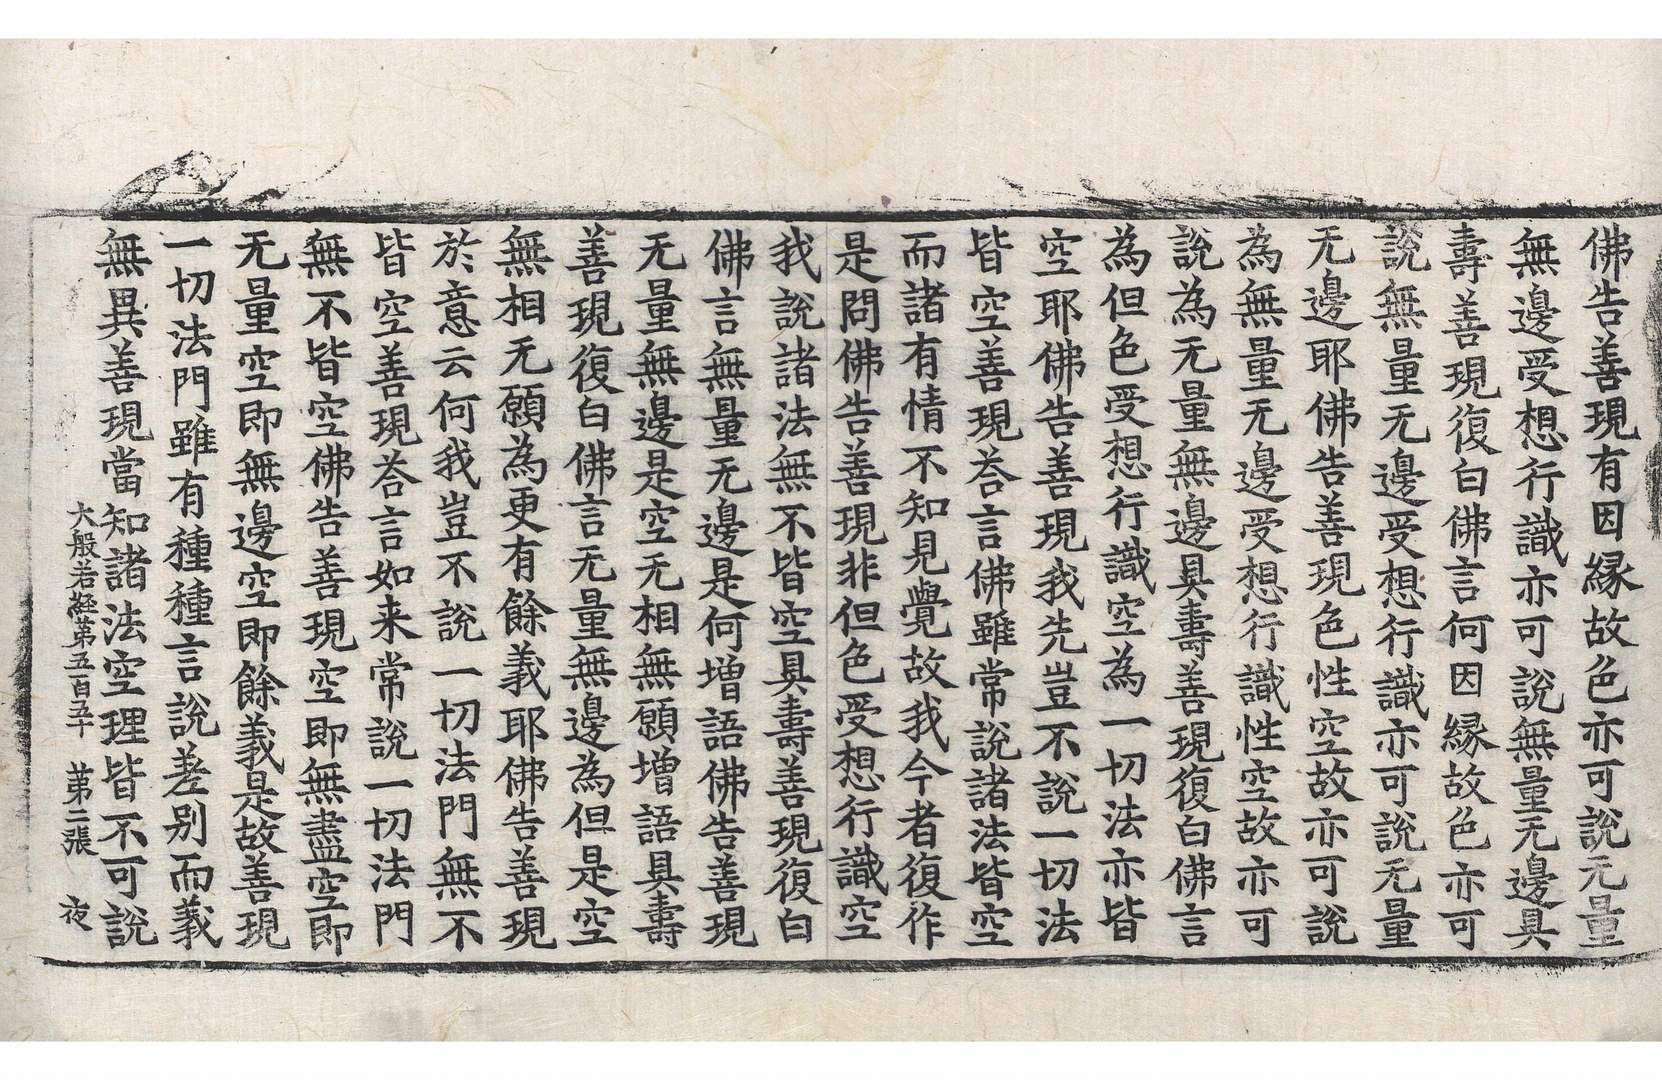 佛告善現有因緣故色亦可說无量
無邊受想行識亦可說無量无邊具
壽善現復白佛言何因緣故色亦可
說無量无邊受想行識亦可說无量
无邊耶佛告善現色性空故亦可說
為無量无邊受想行識性空故亦可
說為无量無邊具壽善現復白佛言
為但色受想行識空為一切法亦皆
空耶佛告善現我先豈不說一切法
皆空善現荅言佛雖常說諸法皆空
而諸有情不知見覺故我今者復作
是問佛告善現非但色受想行識空
我說諸法無不皆空具壽善現復白
佛言無量无邊是何增語佛告善現
无量無邊是空无相無願增語具壽
善現復白佛言无量無邊為但是空
無相无願為更有餘義耶佛告善現
於意云何我豈不說一切法門無不
皆空善現荅言如来常說一切法門
無不皆空佛告善現空即無盡空即
无量空即無邊空即餘義是故善現
一切法門雖有種種言說差別而義
無異善現當知諸法空理皆不可說
大般若經第五百五十 第二張 夜